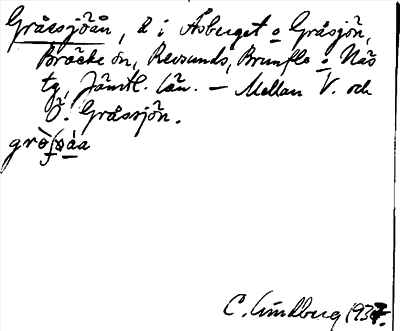 Gråssjöån, å i Åsberget o Gråsjön,
Bräcke sn, Revsunds, Brunflo o Näs
tg, Jämtl. län. — Mellan V. och
Ö. Gråssjön.
C. Lindberg 1937.